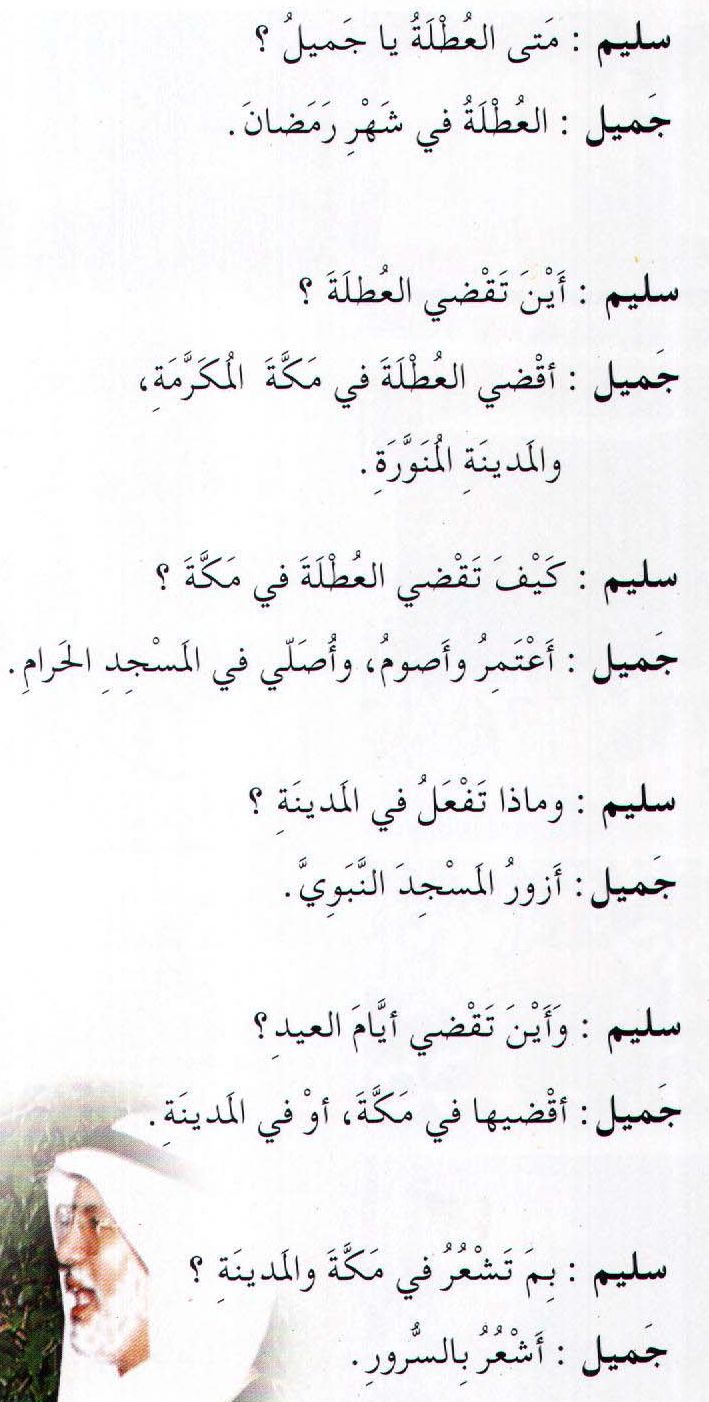 سليم : مَتى العُطْلَةُ يا جَميلُ ؟
جَميل : العُطْلَةُ في شَهْرِ رَمَضانَ .
سليم : أَيْنَ تَقْضي العُطلَةَ ؟
جَميل : أقْضي العُطْلَةَ في مَكَّةَ المُكَرَّمَةِ،
والمَدينَةِ المُنَوَّرَةِ .
سليم : كَيْفَ تَقْضي العُطْلَةَ في مَكَّةَ ؟
جَميل : أَعْتَمِرُ وأَصومُ، وأُصَلّي في المَسْجِدِ الحَرامِ .
سليم : وماذا تَفْعَلُ في المَدينَةِ ؟
جَميل : أَزورُ المَسْجِدَ النَّبَوِيَّ .
سليم : وَأَيْنَ تَقْضي أيَّامَ العيدِ ؟
جَميل : أقْضيها في مَكَّةَ، أوْ في المَدينَةِ .
سليم : بِمَ تَشْعُرُ في مَكَّةَ والمَدينَةِ ؟
جَميل : أَشْعُرُ بِالسُّرورِ .